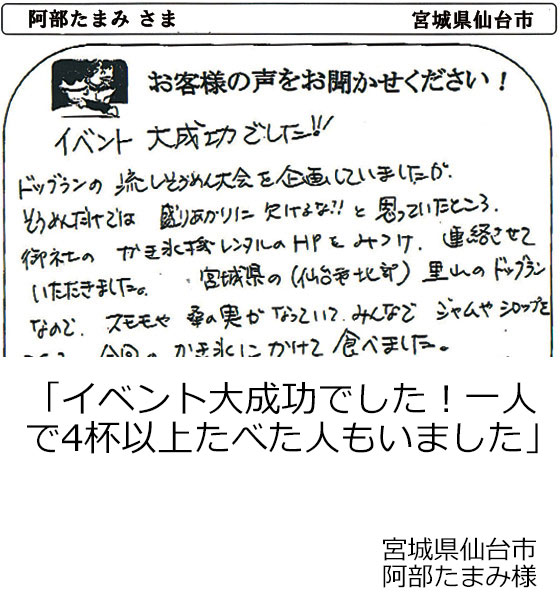 阿部たまみ さま
宮城県仙台市
お客様の声をお聞かせください！
イベント 大成功でした!!
ドッグランの 流しそうめん大会を企画していましたが、
そうめんだけでは 盛りあがりに 欠けるよな?! と思っていたところ、
御社の かき氷機レンタルのHPをみつけ、連絡させて
いただきました。 宮城県の(仙台市北部) 里山のドッグラン
なので、スモモや 桑の実が なっていて、みんなで ジャムやシロップを
かき氷にかけて 食べました。
「イベント大成功でした！一人
で4杯以上たべた人もいました」
宮城県仙台市
阿部たまみ様